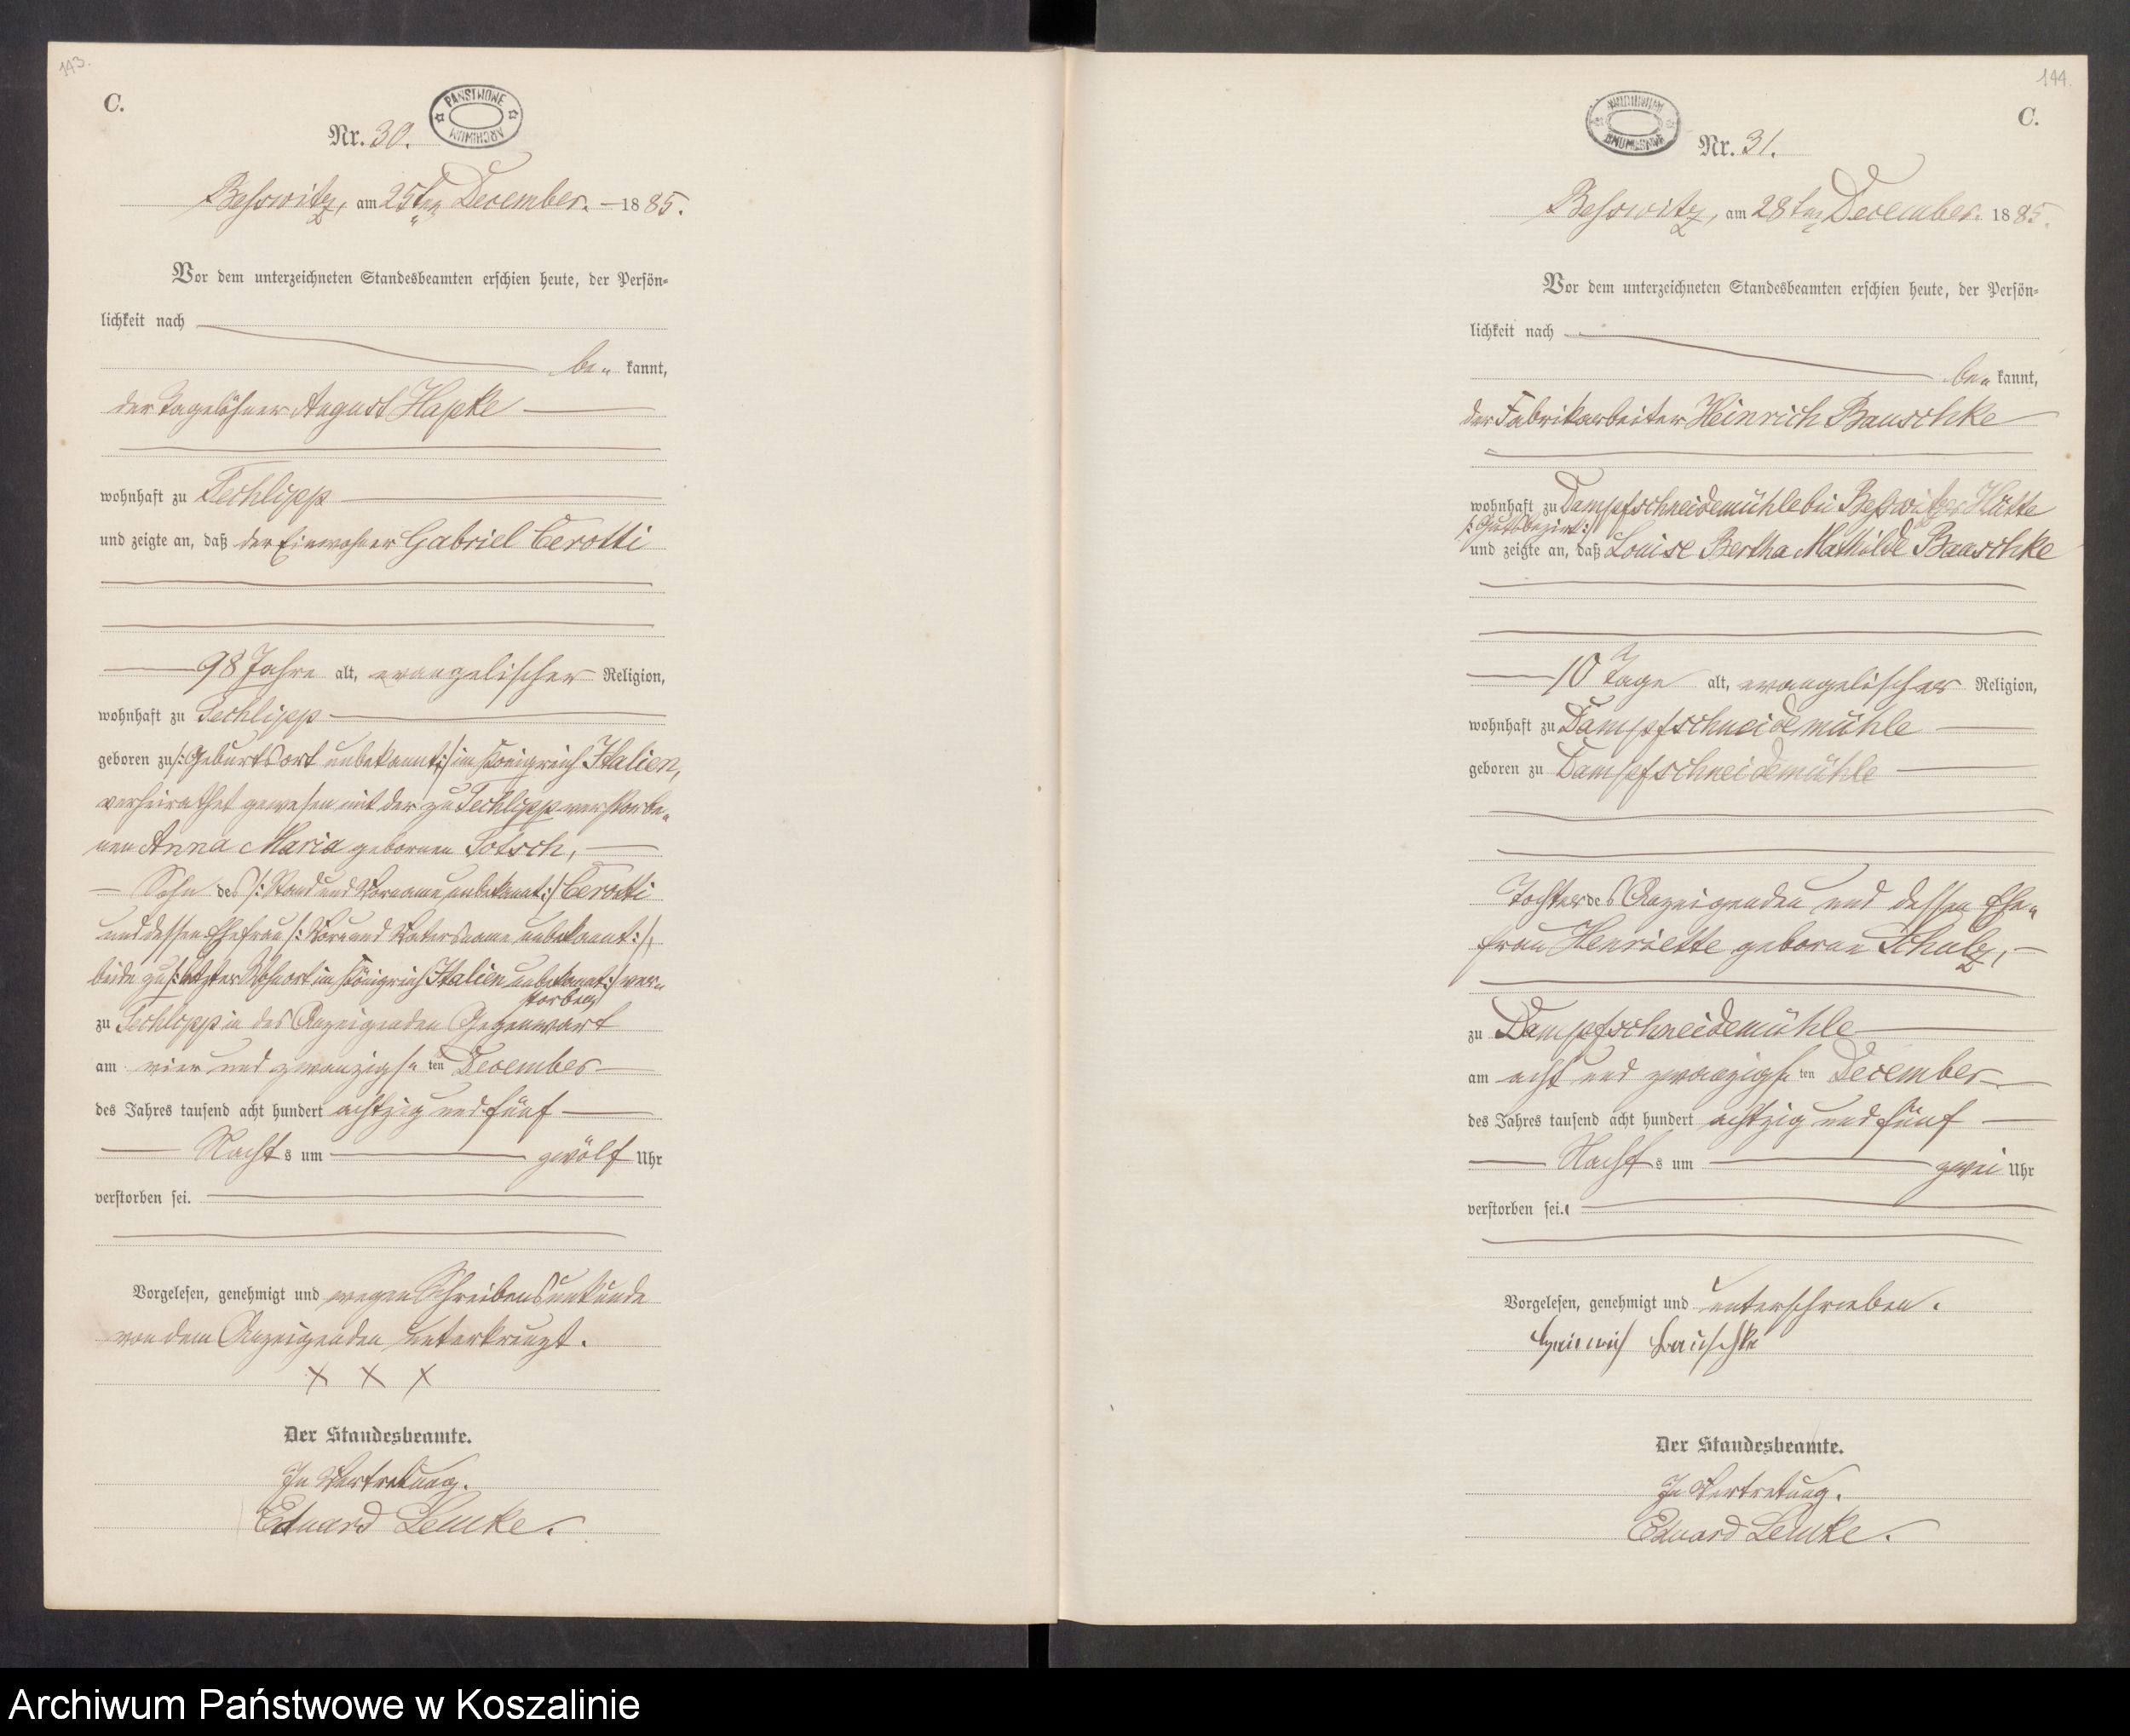 143.
C.
PAŃSTWOWE ARCHIWUM
Nr. 30.
Beßwitz, am 25ten December. 1885.
Vor dem unterzeichneten Standesbeamten erschien heute, der Persön=
lichkeit nach
be= kannt,
der Tagelöhner August Hapke
wohnhaft zu Techlipp
und zeigte an, daß der Einwohner Gabriel Cerotti
98 Jahre alt, evangelischer Religion,
wohnhaft zu Techlipp
geboren zu /: Geburtsort unbekannt :/ im Königreich Italien,
verheirathet gewesen mit der zu Techlipp verstorbe=
nen Anna Maria gebornen Totsch,
Sohn des /: Stand und Vorname unbekannt :/ Cerotti
und dessen Ehefrau /: Vor und Vatersname unbekannt :/,
beide zu /: letzter Wohnort im Königreich Italien unbekannt :/ ver=
storben
zu Techlipp in des Anzeigenden Gegenwart
am vier und zwanzigsten December
des Jahres tausend acht hundert achtzig und fünf
Nachts um zwölf Uhr
verstorben sei.
Vorgelesen, genehmigt und wegen Schreibensunkunde
von dem Anzeigenden unterkreuzt.
X X X
Der Standesbeamte.
In Vertretung.
Eduard Lemke.
144.
C.
PAŃSTWOWE ARCHIWUM
Nr. 31.
Beßwitz, am 28ten December. 1885.
Vor dem unterzeichneten Standesbeamten erschien heute, der Persön=
lichkeit nach
be= kannt,
der Fabrikarbeiter Heinrich Bauschke
wohnhaft zu Dampfschneidemühle bei Beßwitzer Hütte
/: Gutsbezirk :/
und zeigte an, daß Louise Bertha Mathilde Bauschke
10 Tage alt, evangelischer Religion,
wohnhaft zu Dampfschneidemühle
geboren zu Dampfschneidemühle
Tochter des Anzeigenden und dessen Ehe=
frau Henriette geborne Schulz,
zu Dampfschneidemühle
am acht und zwanzigsten December
des Jahres tausend acht hundert achtzig und fünf
Nachts um zwei Uhr
verstorben sei.
Vorgelesen, genehmigt und unterschrieben.
Heinrich Bauschke
Der Standesbeamte.
In Vertretung.
Eduard Lemke.
Archiwum Państwowe w Koszalinie